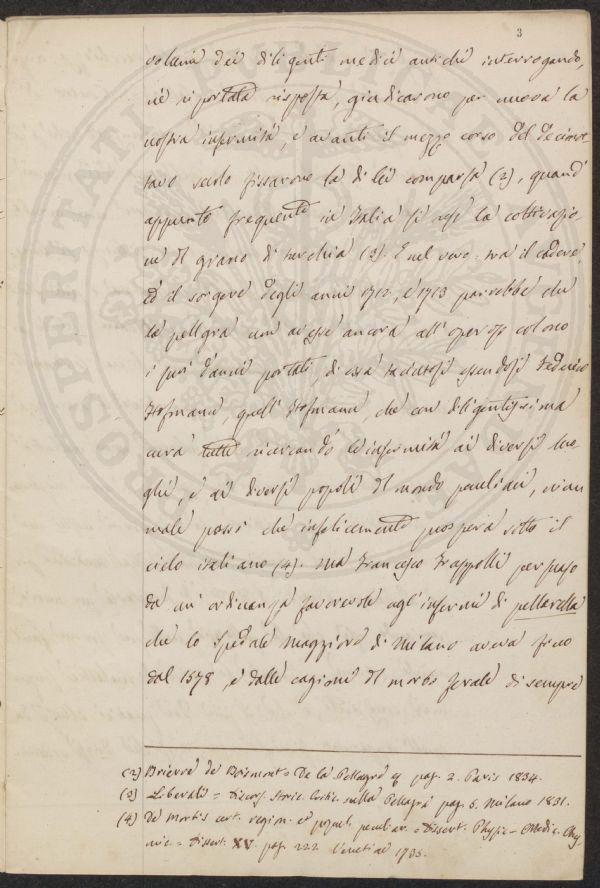 3
volumi dei diligenti medici antichi interrogando,
nè riportata risposta, giudicarono per nuova la
nostra infermità, e avanti il mezzo corso del decimot
tavo secolo fissarono la di lei comparsa (2), quand'
appunto frequente in Italia si rese la coltivazio
ne del grano di turchia (3). E nel vero: tra il cadere,
ed il sorgere degli anni 1712, e 1713 parrebbe che
la pellgra non avesse ancora all' operoso colono
i suoi danni portati, di essa taciutosi essendosi Federico
Hofmann, quell' Hofmann, che con diligentissima
cura tutte ricercando le infermità ai diversi luo
ghi, e ai diversi popoli del mondo peculiari, niun
male possi che infelicemente prosperi sotto il
cielo italiano (4). Ma Francesco Frappolli persuaso
da un' ordinanza favorevole agl' infermi di pellarella
che lo spedale maggiore di Milano aveva fino
dal 1578, e dalle cagioni del morbo ferale di sempre
(2) Brierre de Boismont = De la Pellagre & pag. 2. Paris 1834.
(3) Liberali = Discors. Storic. Critic. sulla Pellagra pag. 6. Milano 1831.
(4) De morbis cert. region. et populi peculiar. = Dissert. Physic - Medic. Chy
mic = Dissert. XV. pag. 222. Venetiae 1735.
PROSPERITATI